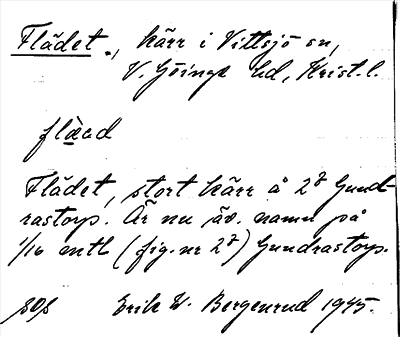 Flädet., kärr i Vittsjö sn,
V. Göinge hd, Krist. l.
flàad
Flädet, stort kärr å 2² Gund-
rastorp. Är nu äv. namn på
1/16 mtl (fig. nr 2²) Gundrastorp.
Erik W. Bergenrud 1945.